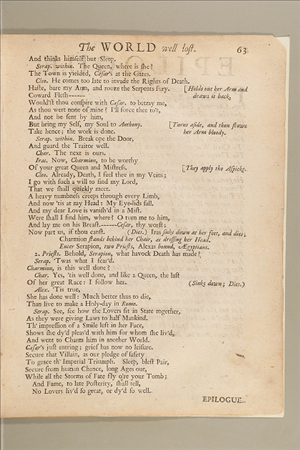 The WORLD well lost. 63
And thinks himself but Sleep.
Serap. within. The Queen, where is she?
The Town is yielded, Cæsar's at the Gates.
Cleo. He comes too late to invade the Rights of Death.
Haste, bare my Arm, and rouze the Serpents Fury. [Holds out her Arm and
Coward Flesh------ draws it back,
Would'st thou conspire with Cæsar, to betray me,
As thou wert none of mine? I'll force thee to't,
And not be sent by him,
But bring my Self, my Soul to Anthony. [Turns aside, and then shows
Take hence; the work is done. her Arm bloody,
Serap. within. Break ope the Door,
And guard the Traitor well.
Char. The next is ours.
Iras. Now, Charmion, to be worthy
Of your great Queen and Mistress. [They apply the Aspicks.
Cleo. Already, Death, I feel thee in my Veins;
I go with such a will to find my Lord,
That we shall quickly meet.
A heavy numbness creeps through every Limb,
And now 'tis at my Head: My Eye-lids fall,
And my dear Love is vanish'd in a Mist.
Where shall I find him, where? O turn me to him,
And lay me on his Breast.------Cæsar, thy worst;
Now part us, if thou canst. (Dies.) Iras sinks down at her feet, and dies;
Charmion stands behind her Chair, as dressing her Head.
Enter Serapion, two Priests, Alexas bound, Egyptians.
2. Priests. Behold, Serapion, what havock Death has made!
Serap. 'Twas what I fear'd.
Charmion, is this well done?
Char. Yes, 'tis well done, and like a Queen, the last
Of her great Race: I follow her. (Sinks down; Dies.)
Alex. 'Tis true,
She has done well: Much better thus to die,
Than live to make a Holy-day in Rome.
Serap. See, see how the Lovers sit in State together,
As they were giving Laws to half Mankind.
Th' impression of a Smile left in her Face,
Shows she dy'd pleas'd with him for whom she liv'd,
And went to Charm him in another World.
Cæsar's just entring; grief has now no leisure.
Secure that Villain, as our pledge of safety
To grace th' Imperial Triumph. Sleep, blest Pair,
Secure from human Chance, long Ages out,
While all the Storms of Fate fly o're your Tomb;
And Fame, to late Posterity, shall tell,
No Lovers liv'd so great, or dy'd so well.
EPILOGUE.